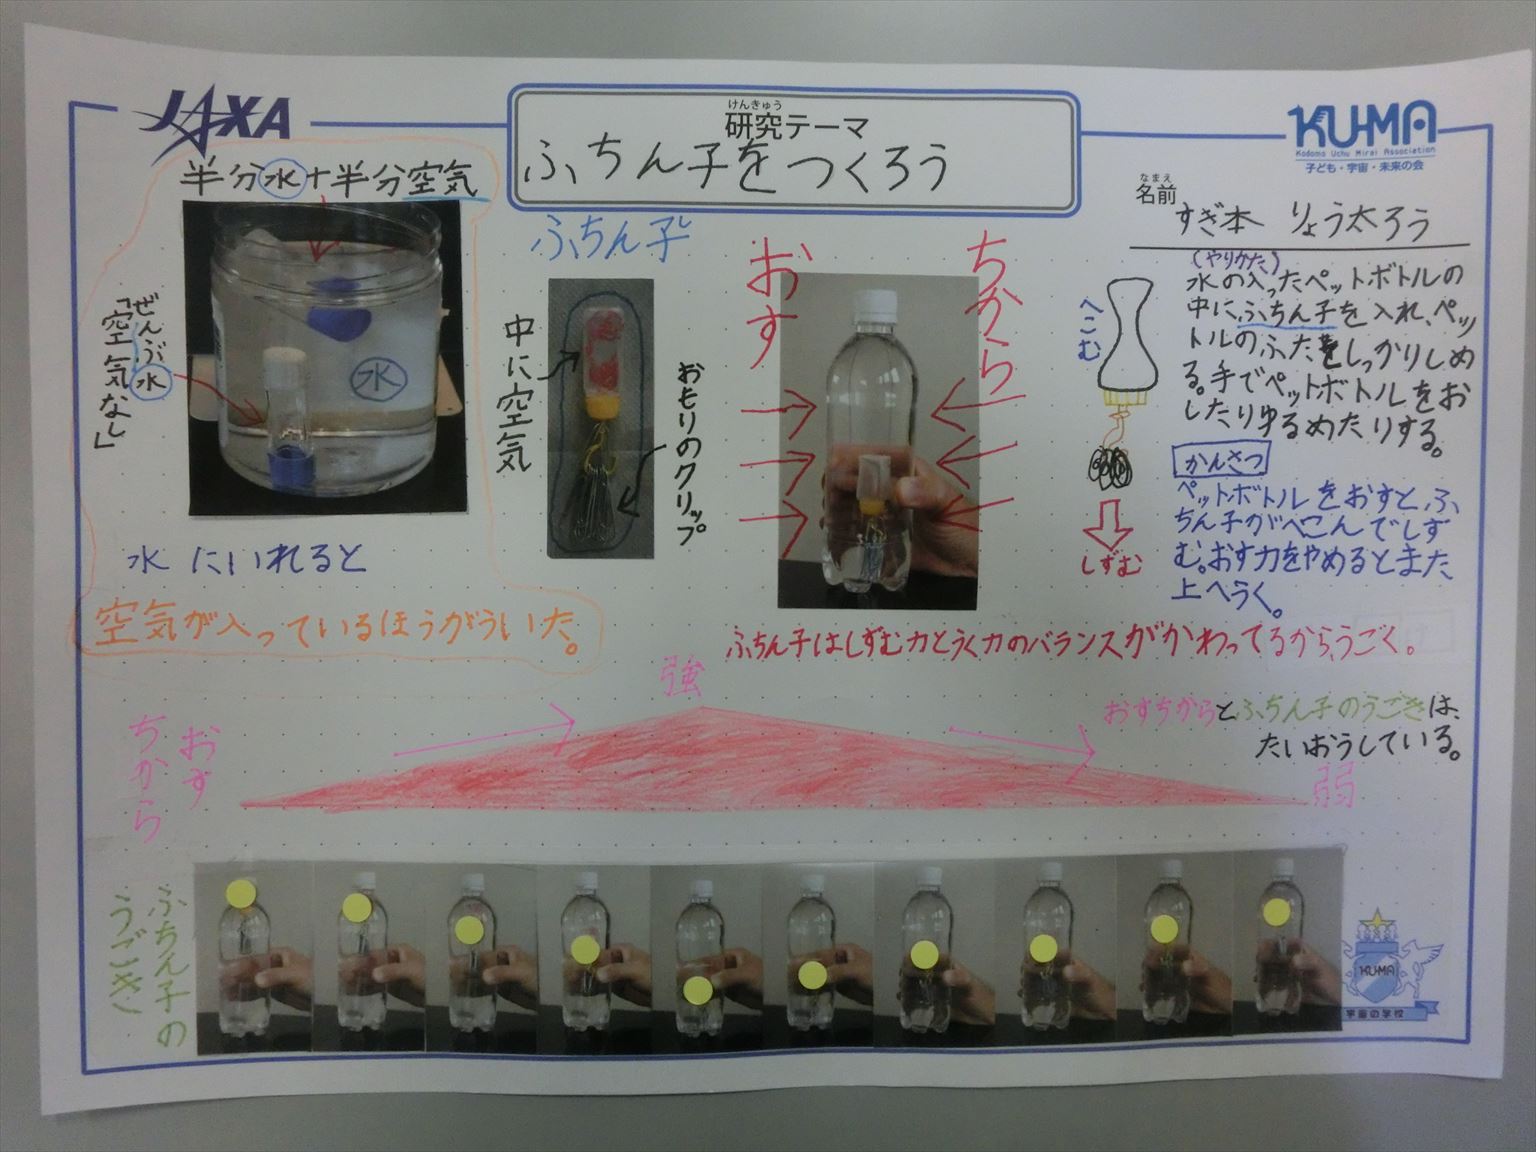 JAXA
けんきゅう
研究テーマ
ふちん子をつくろう
KU-MA
Kodomo Uchu Mirai Association
子ども・宇宙・未来の会
なまえ
名前
すぎ本 りょう太ろう
半分水+半分空気
ぜんぶ水
「空気なし」
水
水 にいれると
空気が入っているほうがういた。
ふちん子
中に空気
おもりのクリップ
おす
ちから
へこむ
しずむ
(やりかた)
水の入ったペットボトルの
中にふちん子を入れ、ペッ
トルのふたをしっかりしめ
る。手でペットボトルをお
したりゆるめたりする。
かんさつ
ペットボトルをおすと、ふ
ちん子がへこんでしず
む。おす力をやめるとまた
上へうく。
ふちん子はしずむ力とうく力のバランスがかわってるから、うごく。
強
おす
ちから
おすちからとふちん子のうごきは、
たいおうしている。
弱
ふちん子の
うごき
KU-MA
宇宙の学校